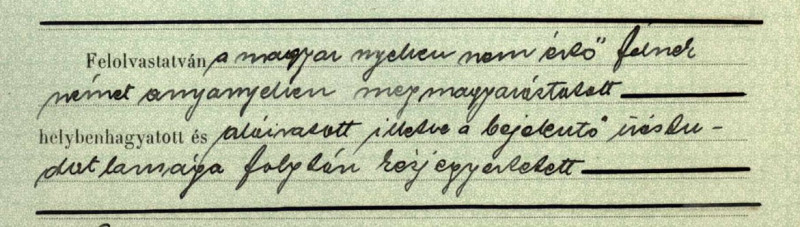 Felolvastatván a magyar nyelven nem értő félnek
német anyanyelven megmagyaráztatott
helybenhagyatott és aláiratott illetve a bejelentő irástu-
datlansága folytán kézjegyeztetett